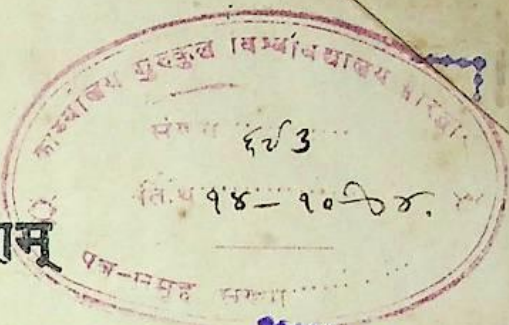 कार्यालय गुरुकुल विश्वविद्यालय कांगड़ी
संख्या ६५३
तिथि १४-१०-७४.
ाम्
पत्र-समूह संख्या